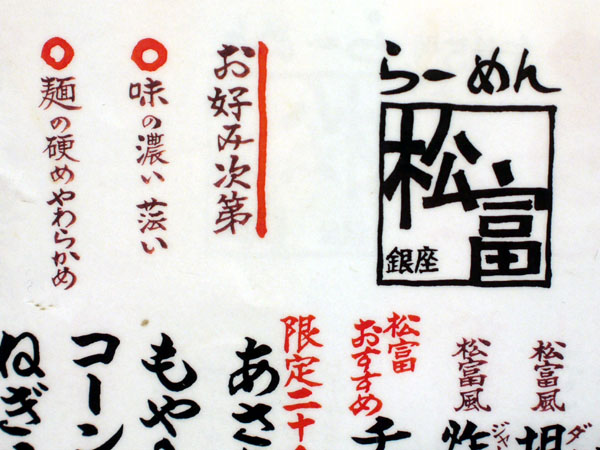 らーめん
松富
銀座
お好み次第
味の濃い 薄い
麺の硬めやわらかめ
松富風
松富風
松富
おすすめ
限定二十
あさ
もや
コーン
ねぎ